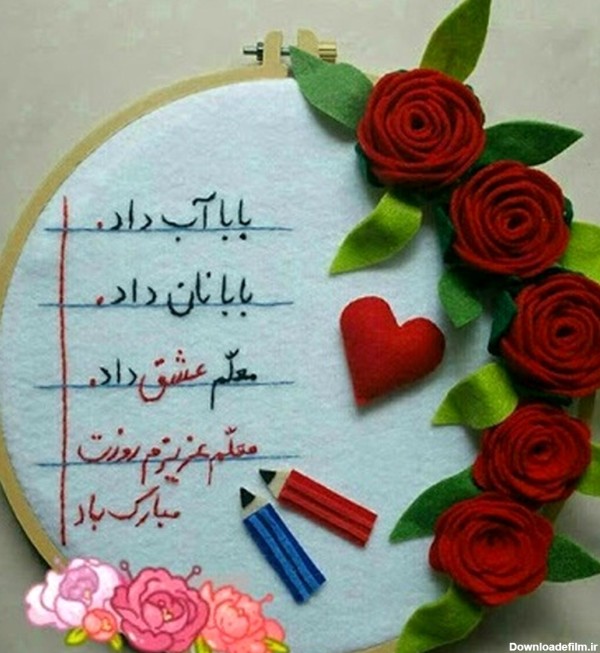 بابا آب داد.
بابا نان داد.
معلّم عشق داد.
معلّم عزیزم روزت
مبارک باد
Downloadefilm.ir